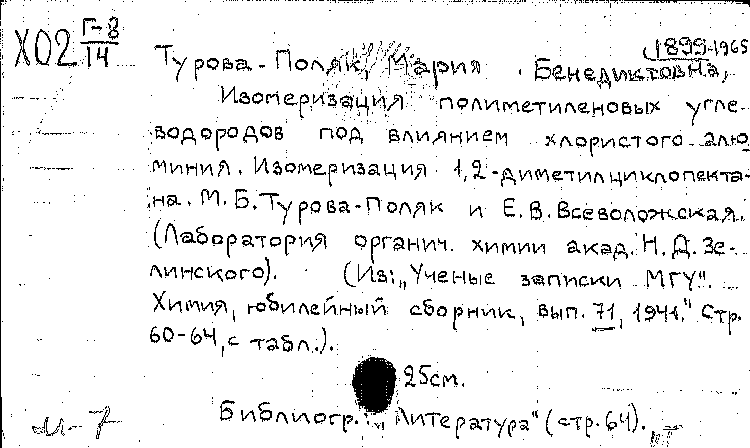 Х02 Г-8/14
1899-1965
Турова-Поляк, Мария Бенедиктовна,
Изомеризация полиметиленовых угле-
водородов под влиянием хлористого алю-
миния. Изомеризация 1,2-диметилциклопента-
на. М.Б.Турова-Поляк и Е.В.Всеволожская.
(Лаборатория органич. химии акад. Н.Д.Зе-
линского). (Из: „Ученые записки МГУ".
Химия, юбилейный сборник, вып. 71, 1941." Стр.
60-64, с табл.).
25см.
Библиогр.: „Литература" (стр.64).
М-7